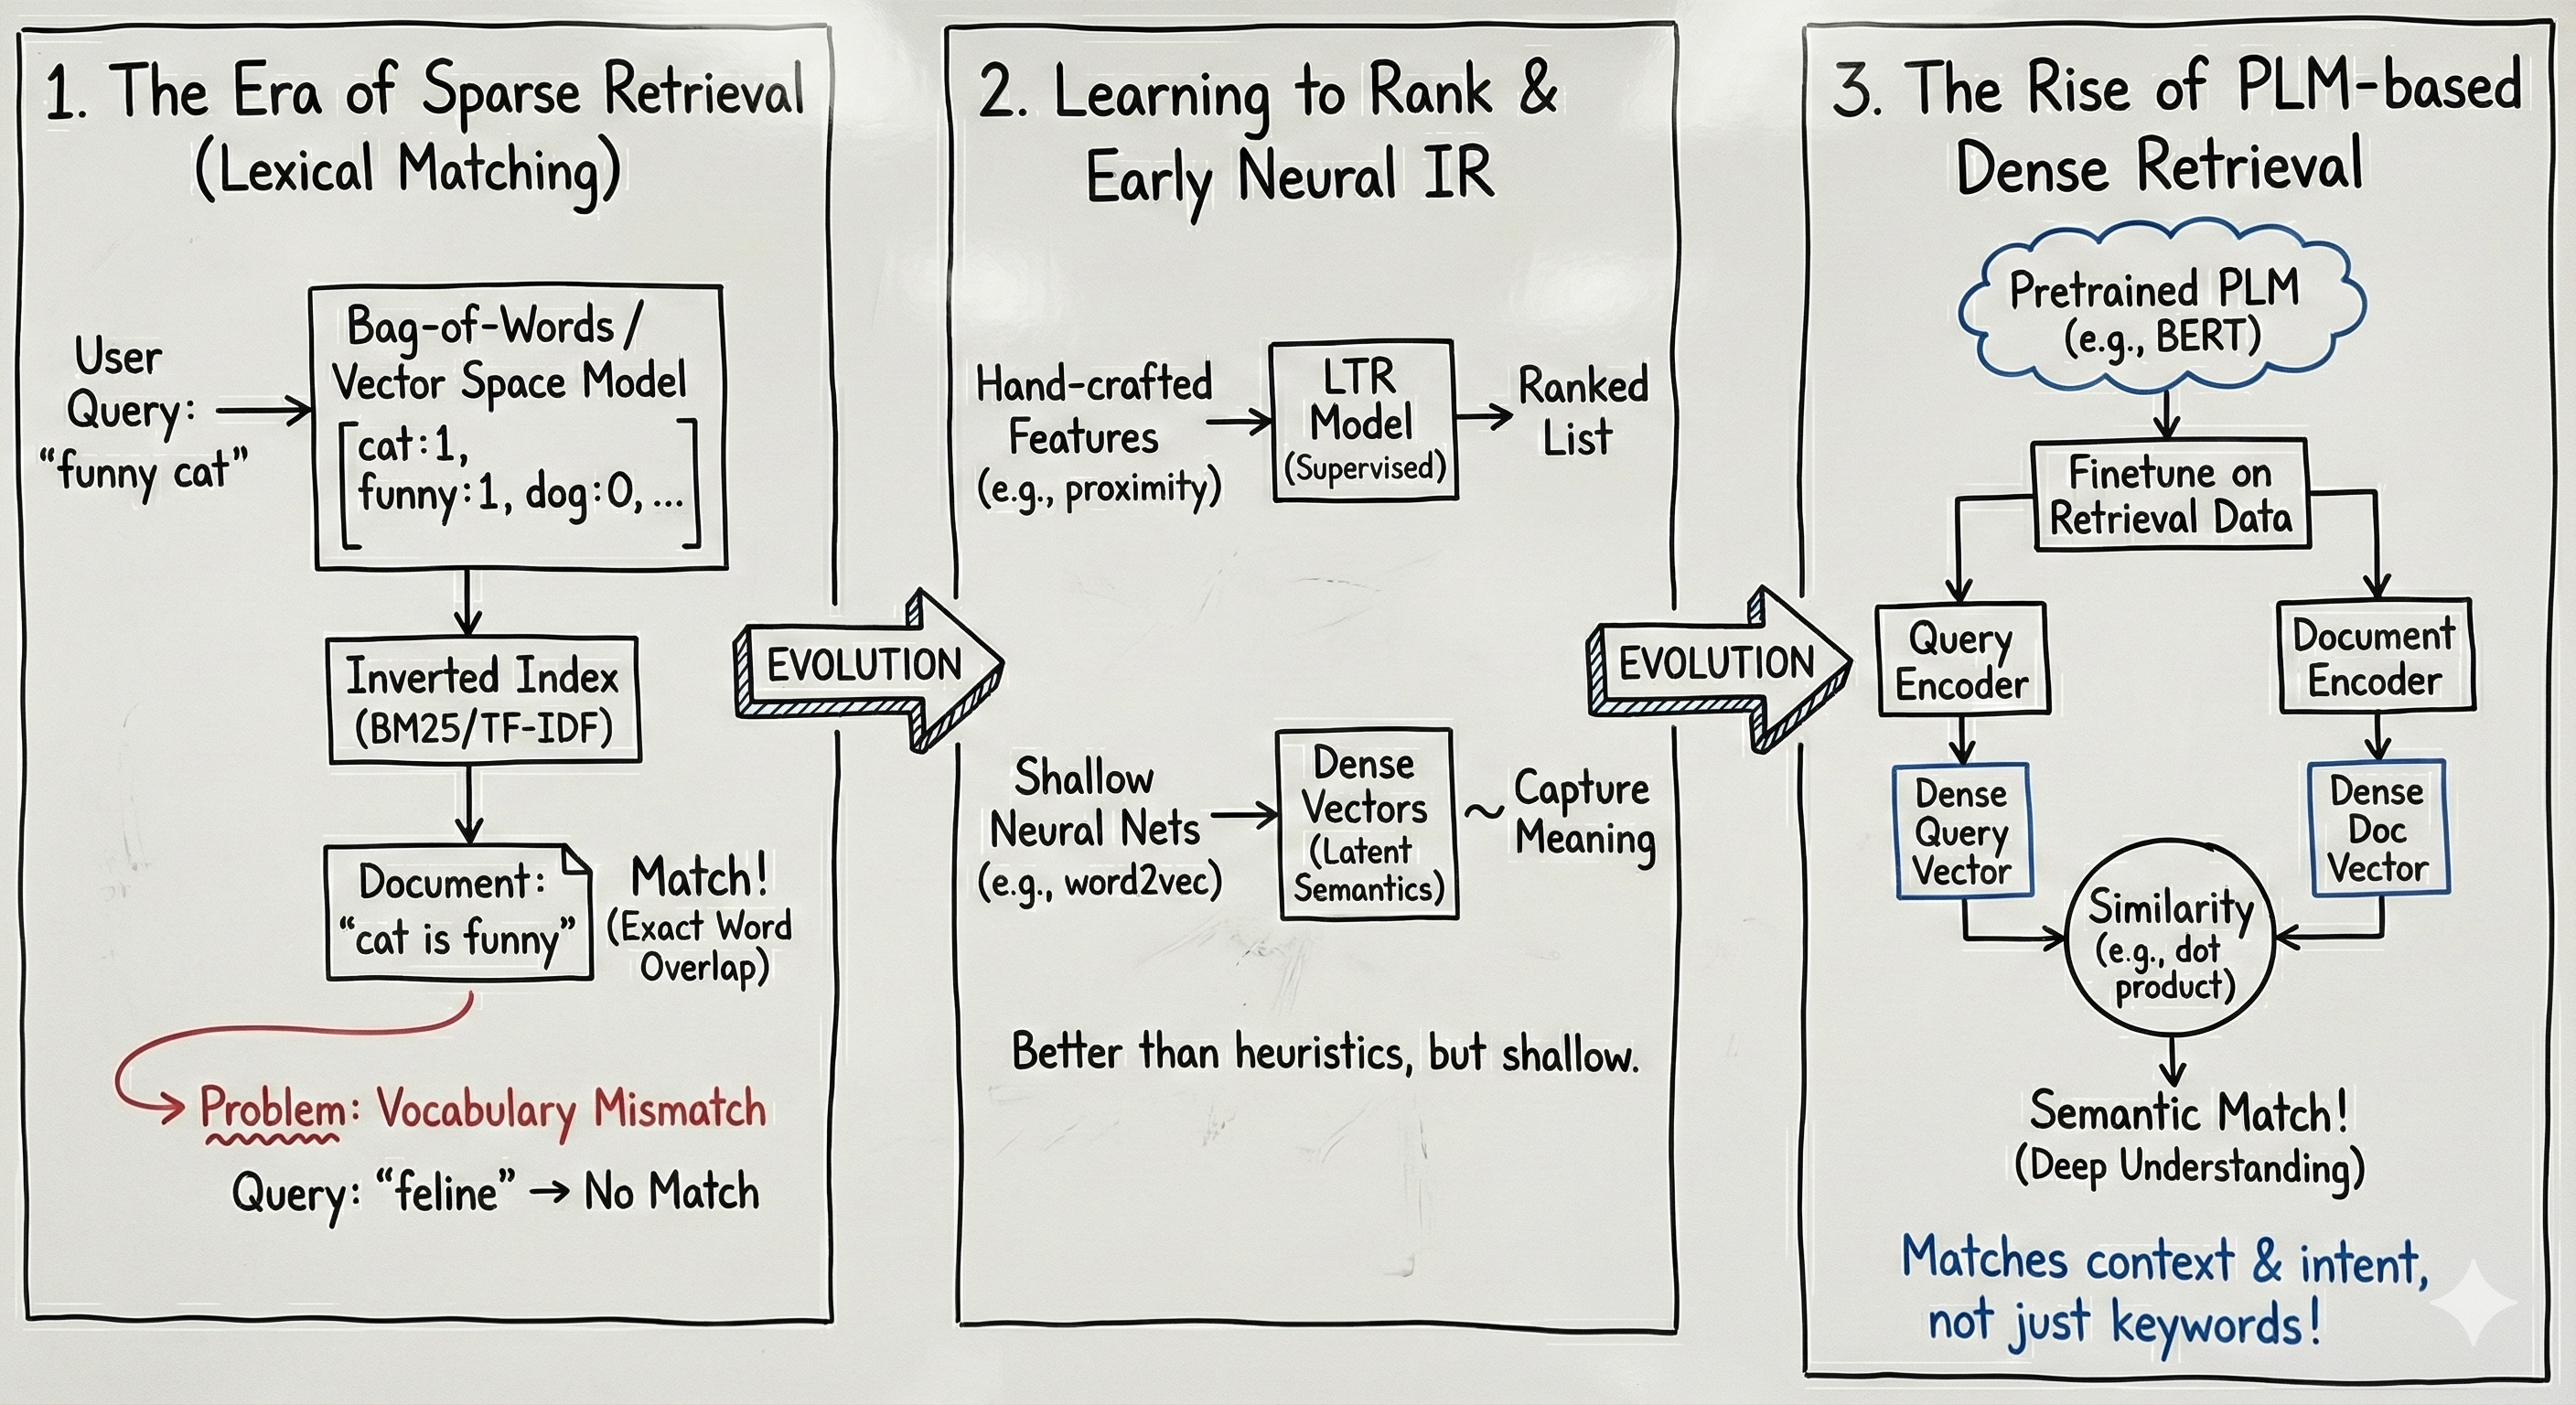 1. The Era of Sparse Retrieval
(Lexical Matching)
User
Query:
“funny cat”
Bag-of-Words/
Vector Space Model
[cat:1,
funny:1, dog:0, ...]
Inverted Index
(BM25/TF-IDF)
Document:
“cat is funny”
Match!
(Exact Word
Overlap)
Problem: Vocabulary Mismatch
Query: “feline” → No Match
EVOLUTION
2. Learning to Rank &
Early Neural IR
Hand-crafted
Features
(e.g., proximity)
LTR
Model
(Supervised)
Ranked
List
Shallow
Neural Nets
(e.g., word2vec)
Dense
Vectors
(Latent
Semantics)
~ Capture
Meaning
Better than heuristics, but shallow.
EVOLUTION
3. The Rise of PLM-based
Dense Retrieval
Pretrained PLM
(e.g., BERT)
Finetune on
Retrieval Data
Query
Encoder
Document
Encoder
Dense
Query
Vector
Dense
Doc
Vector
Similarity
(e.g., dot
product)
Semantic Match!
(Deep Understanding)
Matches context & intent,
not just keywords!